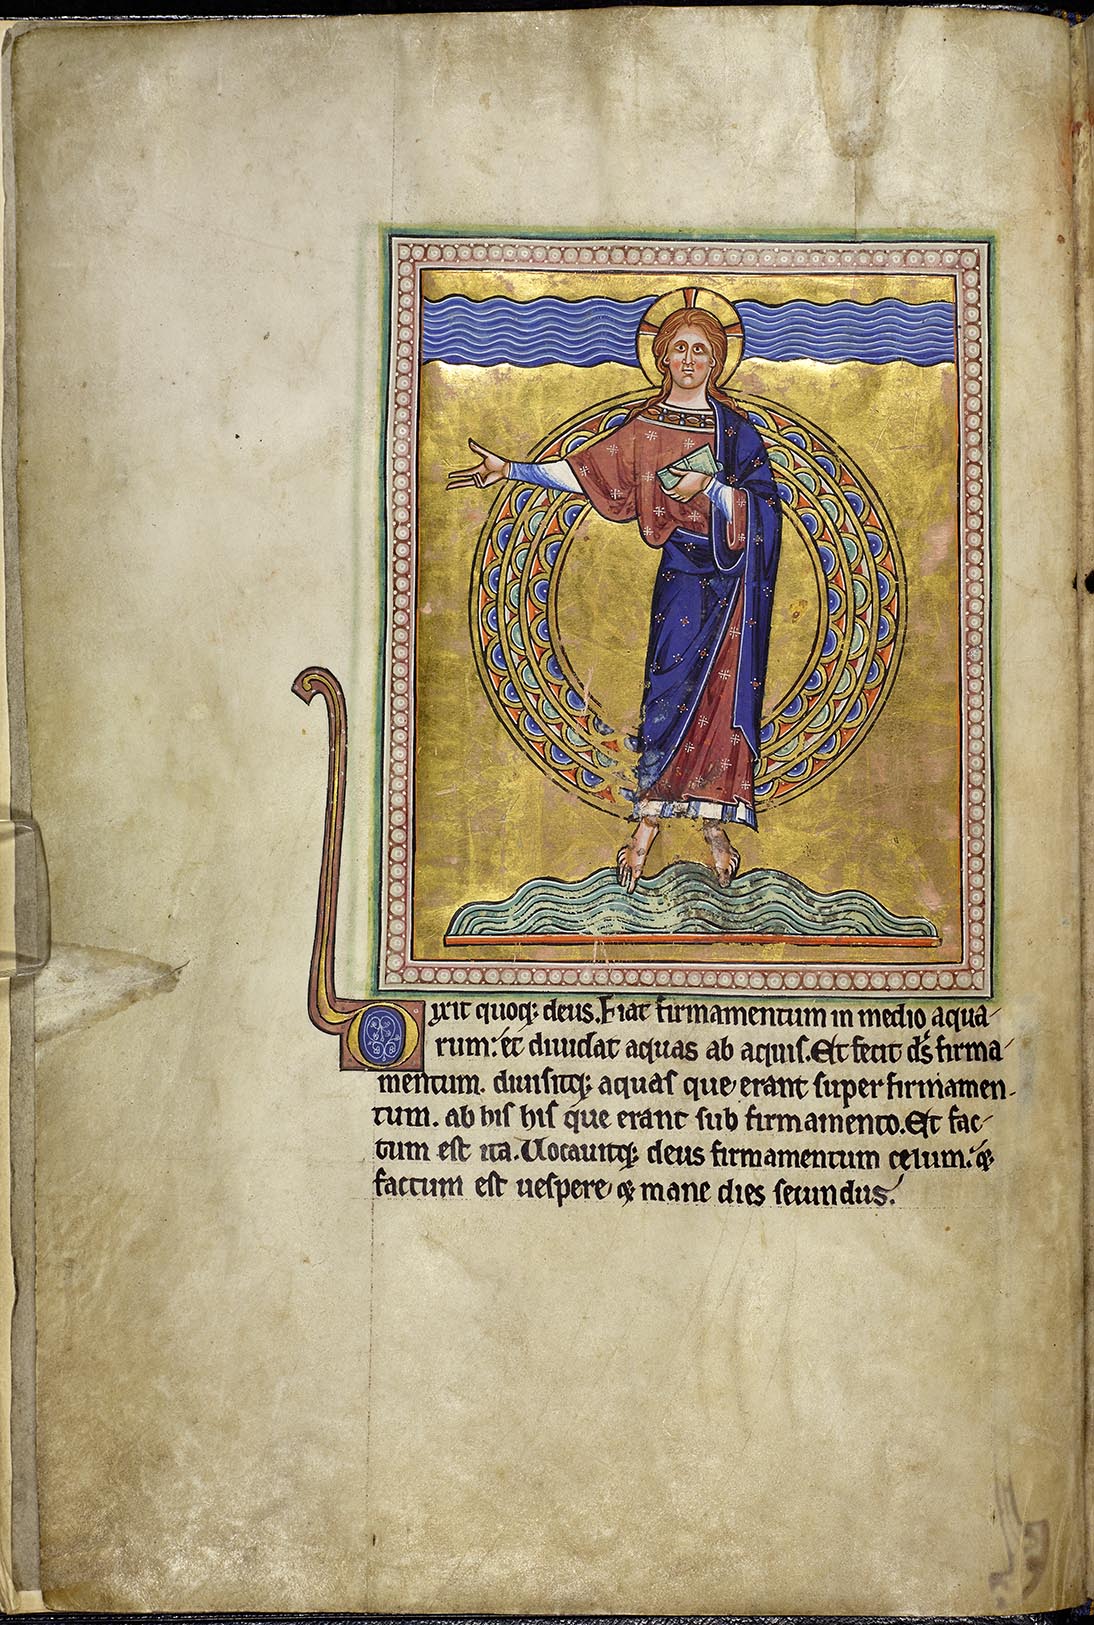 Dixit quoq; deus. Fiat firmamentum in medio aqua-
rum: et diuidat aquas ab aquis. Et fecit ds̄ firma-
mentum. diuisitq; aquas que erant super firmamen-
tum. ab his his que erant sub firmamento. Et fac-
tum est ita. Uocauitq; deus firmamentum celum: &
factum est uespere & mane dies secundus.